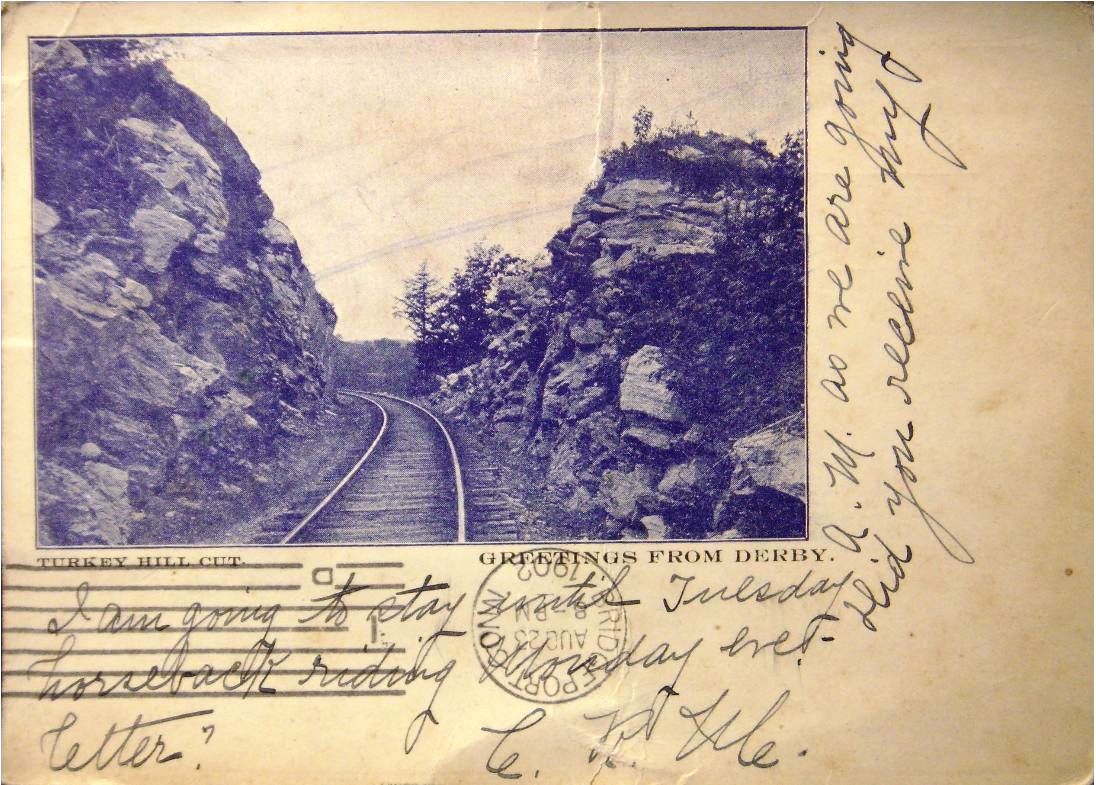 TURKEY HILL CUT.
GREETINGS FROM DERBY.
I am going to stay until Tuesday
A. M. as we are going
horseback riding Monday eve.
Did you receive my
letter?
BRIDGEPORT CONN.
AUG 23
8 PM
1902
D
1